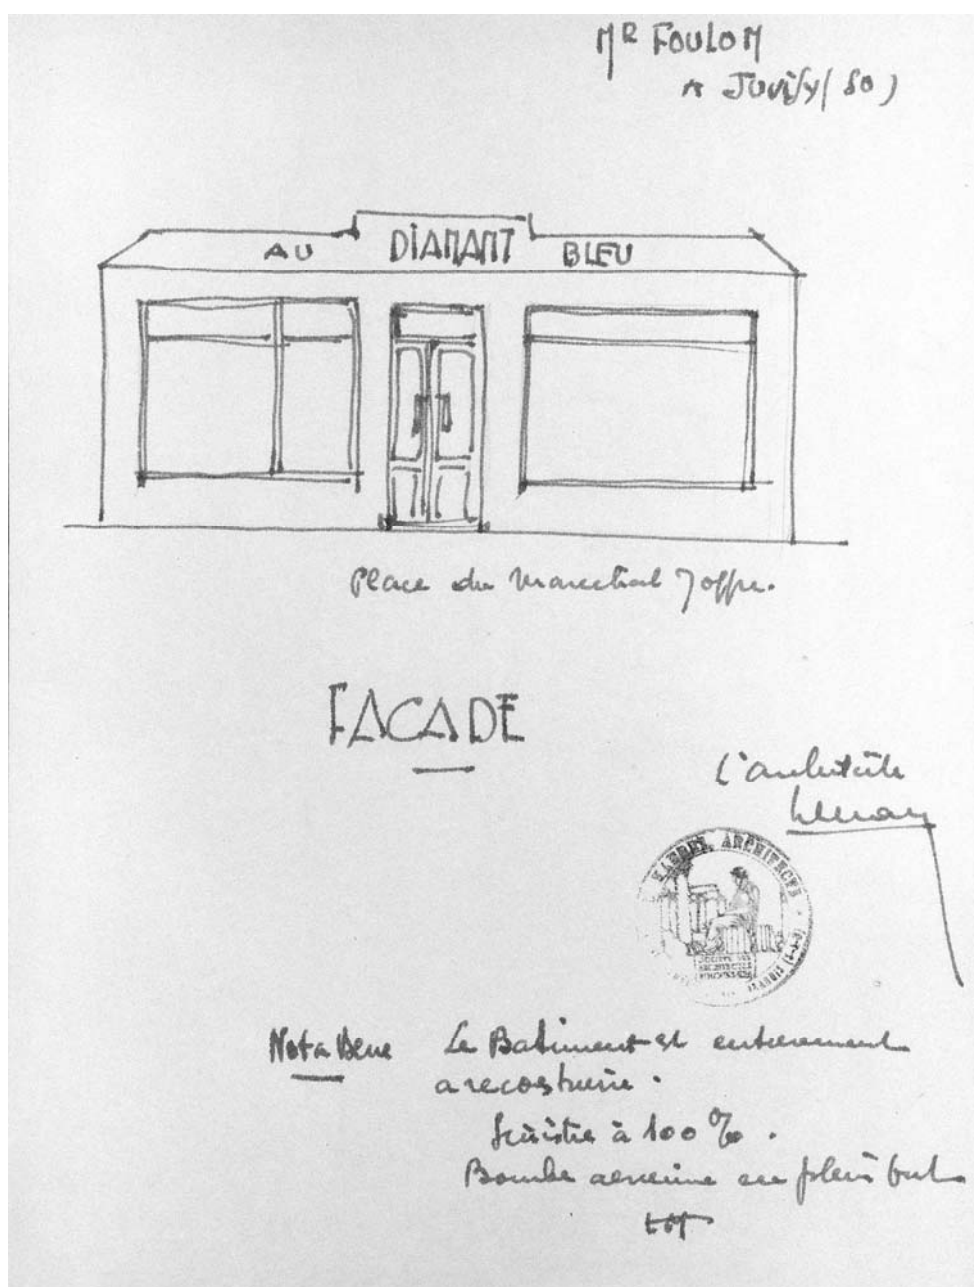 MR FOULON
A JUVISY (SO)
AU DIAMANT BLEU
Place du Marechal Joffre.
FACADE
L'architecte
ARCHITECTE
SOCIETE DES
ARCHITECTES
Nota Bene Le Batiment est entierement
a recostruire.
Sinistre à 100 %.
Bombe aerienne en plein but